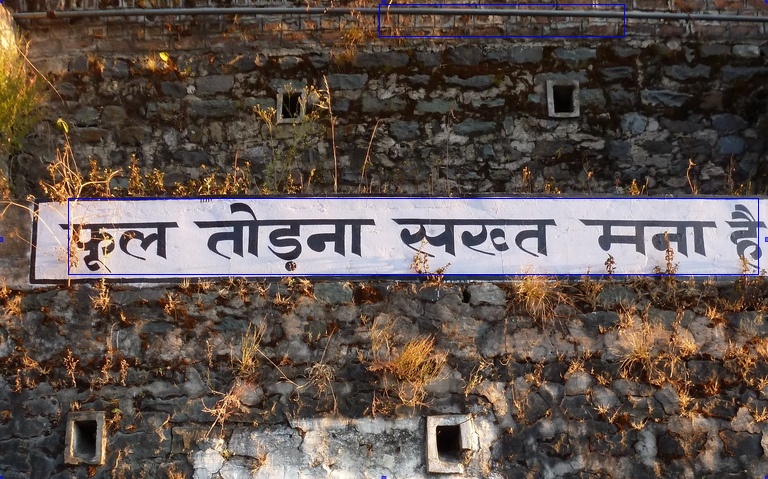 फूल तोड़ना सख्त मना है